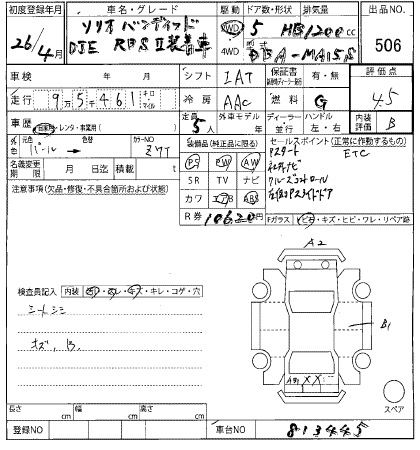 初度登録年月 車名・グレード 駆動 ドア数・形状 排気量 出品NO.
26/4月 ソリオ バンディット 2WD 5 HB 1200cc 506
DJE RBSⅡ装着車 4WD DBA-MA15S
車検 年 月 シフト IAT 保証書 有・無 評価点
走行 9万5千461 キロ マイル 冷房 AAC 燃料 G 4.5
車歴 自家用・レンタ・事業用( ) 定員 5人 外車モデル 年 ディーラー 並行 ハンドル 左・右 内装 B
外色 元色 パール 色替 カラーNO ZVT 装備品(純正品に限る) セールスポイント(正常に作動するもの)
名義変更期限 月 日迄 積載 t PS PW AW Pスタート ETC
注意事項(欠品・修復・不具合箇所および状態) SR TV ナビ 社外ナビ
カワ エアB ABS クルーズコントロール
R券 10620円 左側Pスライドドア
Fガラス トビキ・キズ・ヒビ・ワレ・リペア跡
A2
検査員記入 内装 汚れ・スレ・キズ・キレ・コゲ・穴
シートシミ
キズ、B
B1
XX
スペア
長さ cm 幅 cm 高さ cm
登録NO 車台NO 813445